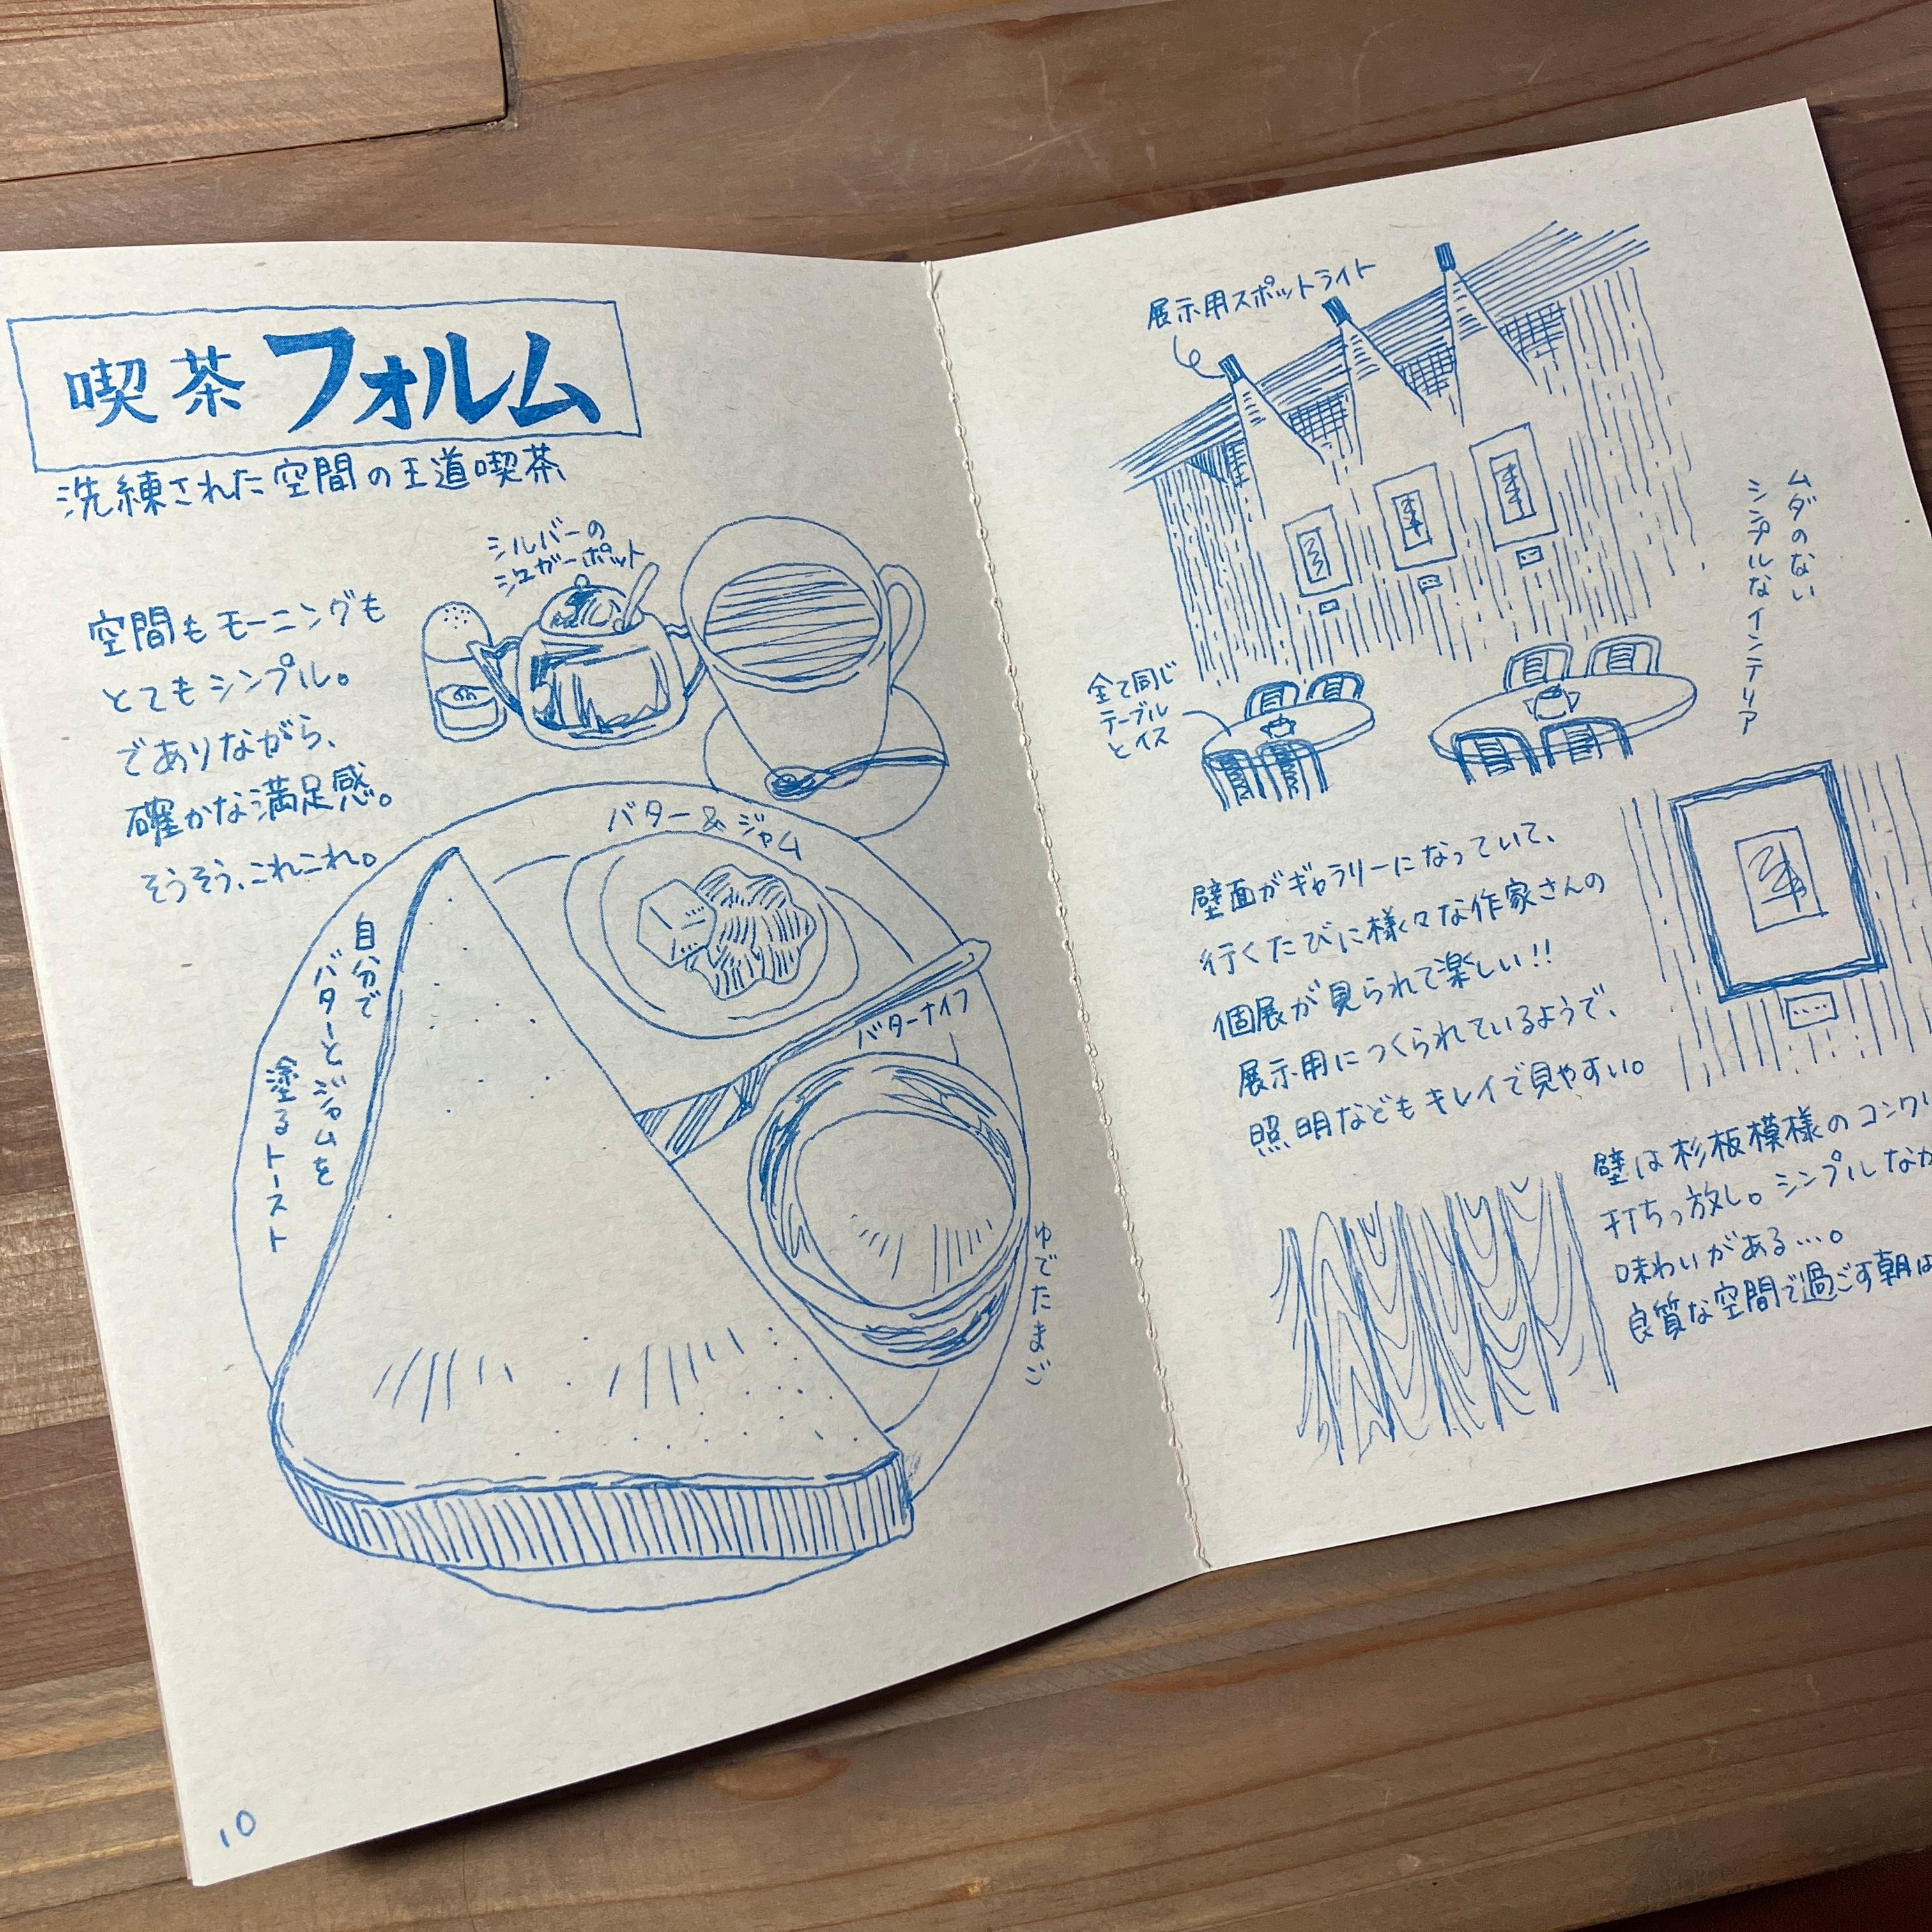 喫茶フォルム
洗練された空間の王道喫茶
空間もモーニングも
とてもシンプル。
でありながら、
確かな満足感。
そうそう、これこれ。
シルバーの
シュガーポット
バター&ジャム
バターナイフ
自分で
バターとジャムを
塗るトースト
ゆでたまご
10
展示用スポットライト
ムダのない
シンプルなインテリア
全て同じ
テーブル
とイス
壁面がギャラリーになっていて、
行くたびに様々な作家さんの
個展が見られて楽しい!!
展示用につくられているようで、
照明などもキレイで見やすい。
壁は杉板模様のコンクリ
打ちっ放し。シンプルなが
味わいがある…。
良質な空間で過ごす朝は